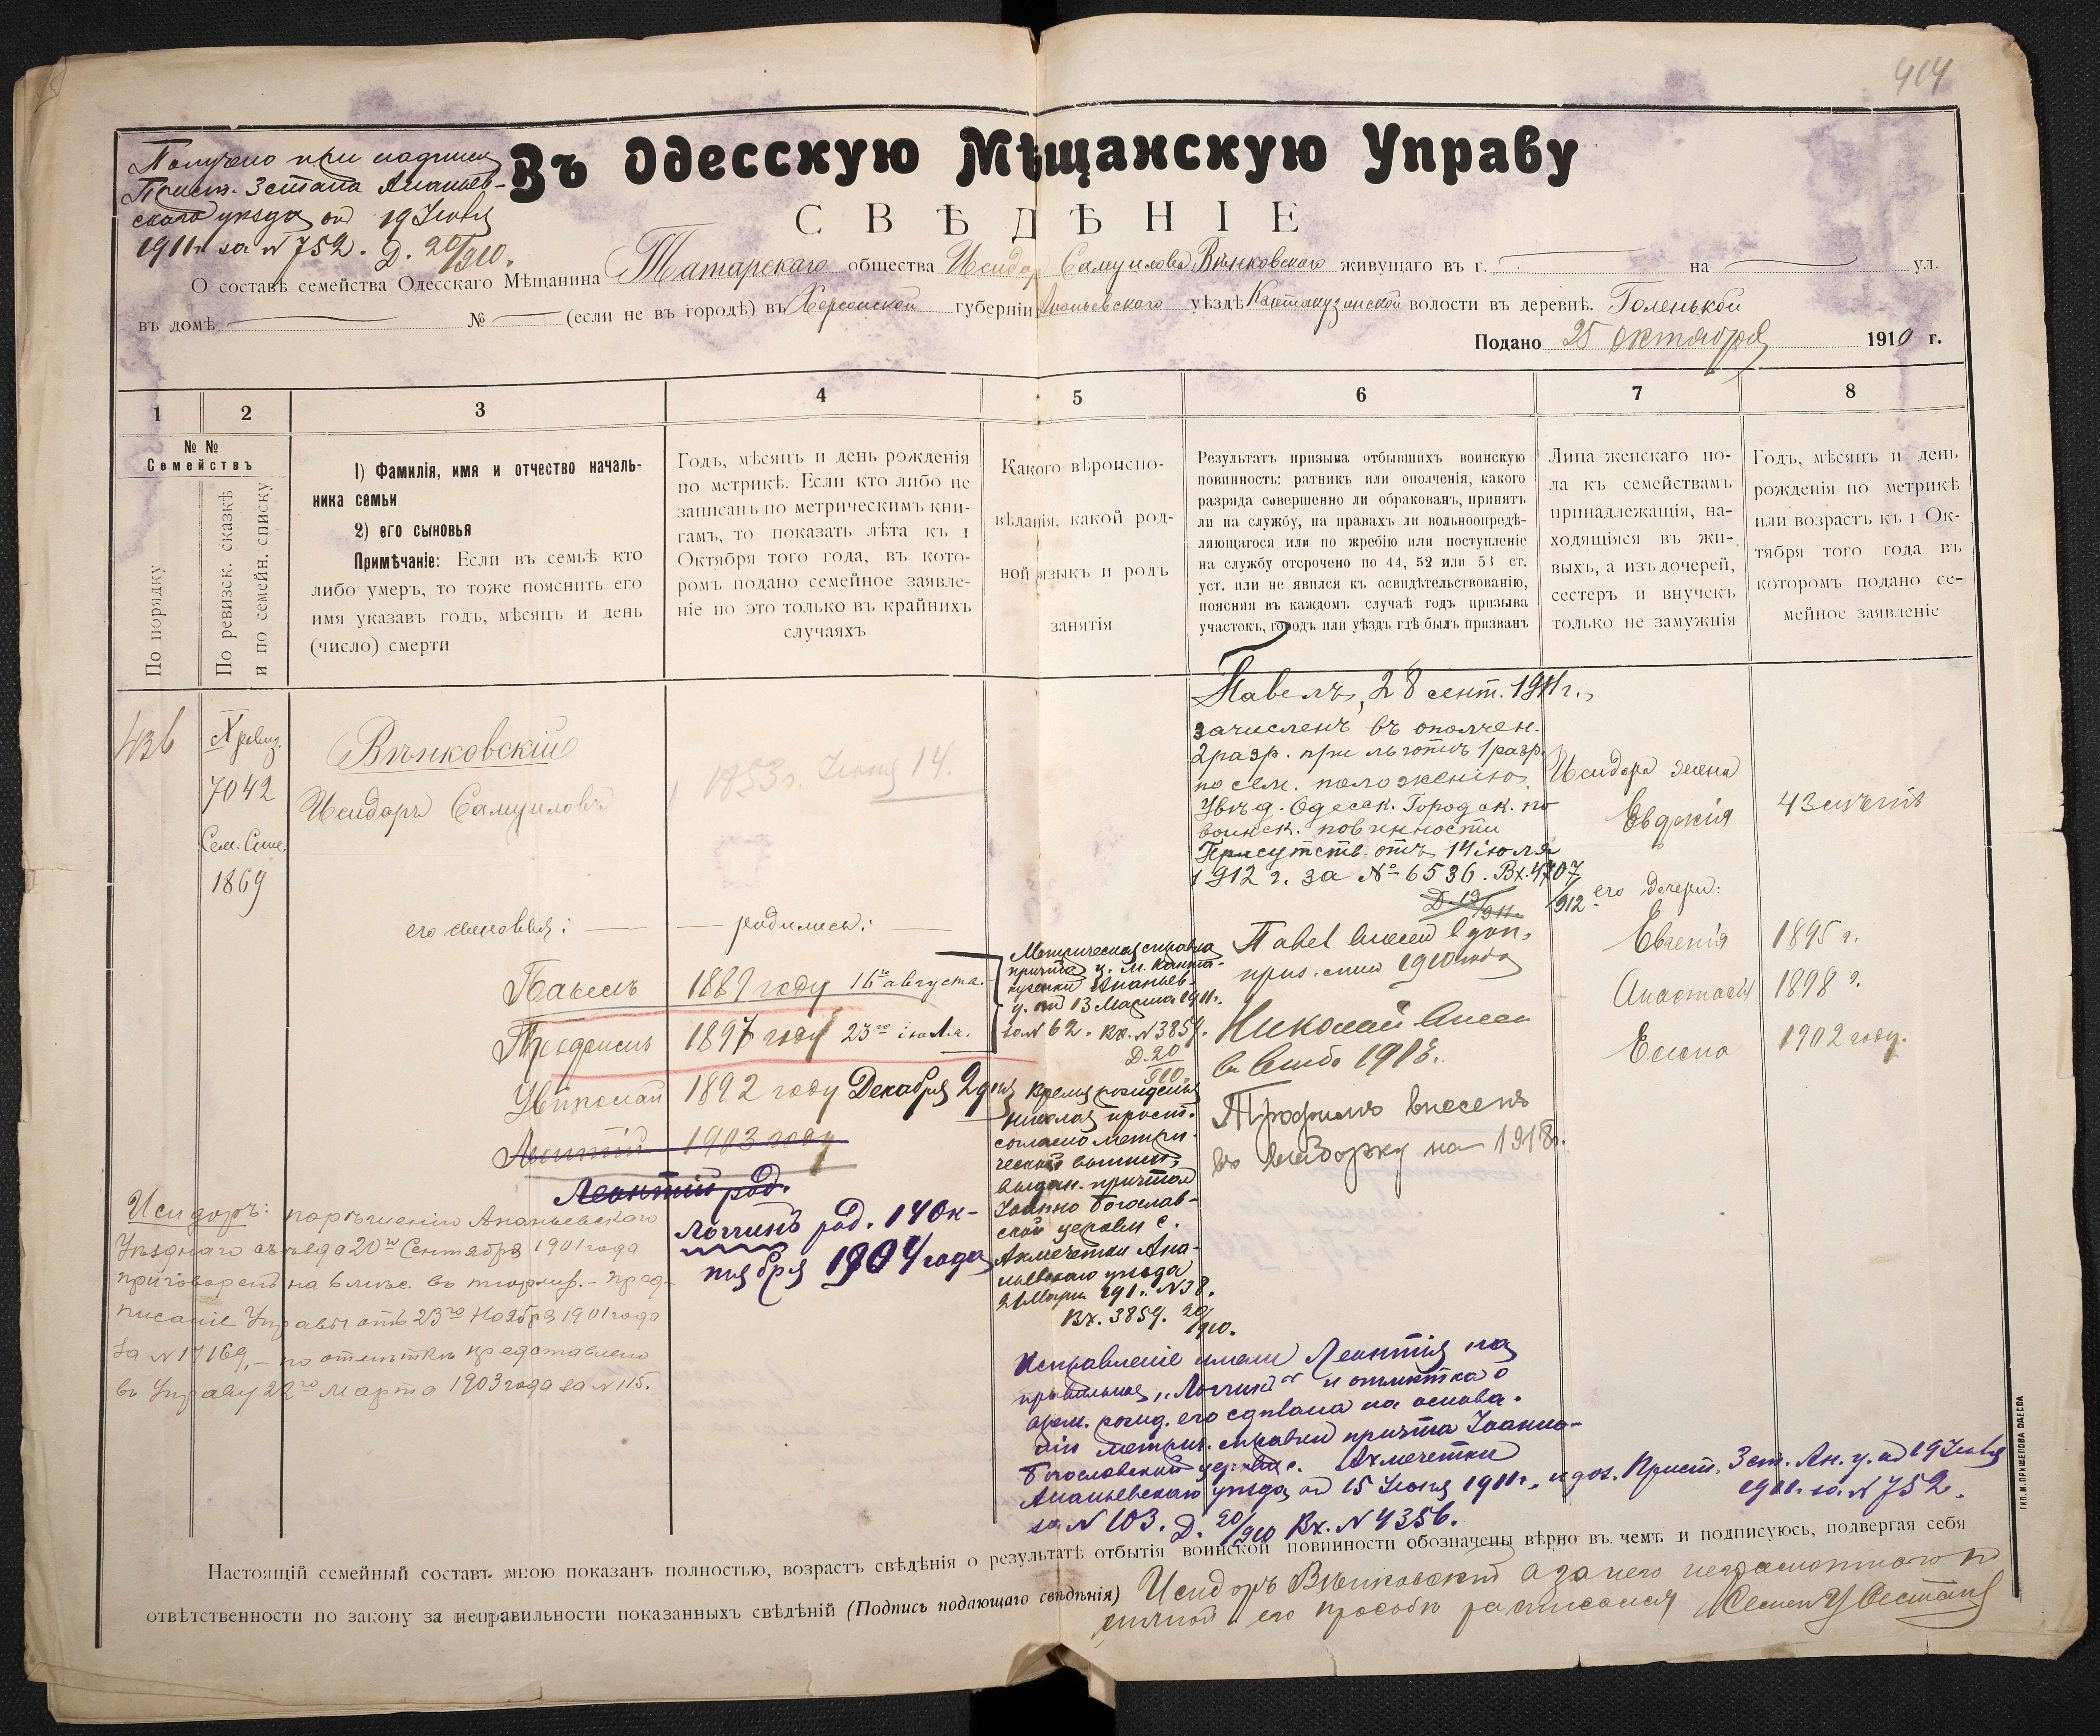 414
Получено при надписи
Прист. 3 стана Ананьев-
скаго уѣзда от 19 Іюня
1911 г. за № 752. Д. 20/910.
Въ Одесскую Мѣщанскую Управу
СВѢДѢНІЕ
О составѣ семейства Одесскаго Мѣщанина Татарскаго общества Исидор Самуилова Вѣнковскаго живущаго въ г. на ул.
въ домѣ № (если не въ городѣ) въ Херсонской губерніи Ананьевскаго уѣздѣ Кантакузинской волости въ деревнѣ. Голенькой
Подано 25 октября 1910 г.
1 2 3 4 5 6 7 8
№ №
Семействъ
По порядку
По ревизск. сказкѣ
и по семейн. списку
1) Фамилія, имя и отчество началь-
ника семьи
2) его сыновья
Примѣчаніе: Если въ семьѣ кто
либо умеръ, то тоже пояснить его
имя указавъ годъ, мѣсяцъ и день
(число) смерти
Годъ, мѣсяцъ и день рожденія
по метрикѣ. Если кто либо не
записанъ по метрическимъ кни-
гамъ, то показать лѣта къ 1
Октября того года, въ кото-
ромъ подано семейное заявле-
ніе но это только въ крайнихъ
случаяхъ
Какого вѣроиспо-
вѣданія, какой род-
ной языкъ и родъ
занятія
Результатъ призыва отбывшихъ воинскую
повинность: ратникъ или ополченія, какого
разряда совершенно ли обракованъ, принятъ
ли на службу, на правахъ ли вольноопредѣ-
ляющагося или по жребію или поступленіе
на службу отсрочено по 44, 52 или 53 ст.
уст. или не явился къ освидѣтельствованію,
поясняя въ каждомъ случаѣ годъ призыва
участокъ, городъ или уѣздъ гдѣ былъ призванъ
Лица женскаго по-
ла къ семействамъ
принадлежащія, на-
ходящіяся въ жи-
выхъ, а изъ дочерей,
сестеръ и внучекъ
только не замужнія
Годъ, мѣсяцъ и день
рожденія по метрикѣ
или возрастъ къ 1 Ок-
тября того года въ
которомъ подано се-
мейное заявленіе
436
X ревиз.
7042
Сем. Спис.
1869
Вѣнковскій
Исидоръ Самуиловъ
1853 г. Іюня 14.
его сыновья: родились:
Павелъ 1889 году 16го августа.
Трофимъ 1897 году 23го іюля.
Николай 1892 году Декабря 2 дня
Леонтій 1903 году
Леонтій род.
Логгинъ род. 14 Ок-
тября 1904 года
Исидоръ: по рѣшенію Ананьевскаго
Уѣзднаго съѣзда 20го Сентября 1901 года
приговоренъ на 6 мѣс. въ тюрьму. – Пред-
писаніе Управы отъ 23го Ноября 1901 года
за № 17169, – по отмѣткѣ представлено
въ Управу 22го Марта 1903 года за № 115.
Метрическая справка
причта ц. м. Канта-
кузенки Ананьев.
у. от 13 Марта 1911 г.
за № 62. Вх. № 3859.
Д. 20/910.
Время рожденія
Николая прост.
согласно метри-
ческой выписи,
выдан. причтом
Іоанно Богослав-
ской церкви с.
Ахмечетки Ана-
ньевскаго уѣзда
21 Марта 1911 г. № 38.
Вх. 3859. 20/910.
Исправленіе имени Леонтія на
правильное „Логгинъ" и отмѣтка о
врем. рожд. его сдѣлана на основа-
ніи метрич. справки причта Іоанно-
Богословской церкви с. Ахмечетки
Ананьевскаго уѣзда от 15 Іюня 1911 г. и доз. Прист. 3 ст. Ан. у. от 19 Іюня
1911 г. за № 752.
за № 103. Д. 20/910 Вх. № 4356.
Павелъ, 28 сент. 1911 г.,
зачисленъ въ ополчен.
2 разр. при льготѣ 1 разр.
по сем. положенію.
Увѣд. Одесск. Городск. по
воинск. повинности
Присутств. отъ 14 іюля
1912 г. за № 6536. Вх. 4707/912
Д. 19/911.
Павел внесен в доп.
приз. спис 1910 года
Николай внесен
в выб. 1913 г.
Трофимъ внесенъ
въ выборку на 1918 г.
Исидора жена
Евдокія 43 лѣтъ
его дочери:
Евгенія 1895 г.
Анастасія 1898 г.
Елена 1902 году.
Настоящій семейный составъ мною показанъ полностью, возрастъ свѣдѣнія о результатѣ отбытія воинской повинности обозначены вѣрно въ чемъ и подписуюсь, подвергая себя
отвѣтственности по закону за неправильности показанныхъ свѣдѣній (Подпись подающаго свѣдѣнія) Исидоръ Вѣнковскій а за него неграмотнаго по
личной его просьбѣ росписался Семен
ТИП. М. ПРИШЕПОВА ОДЕССА